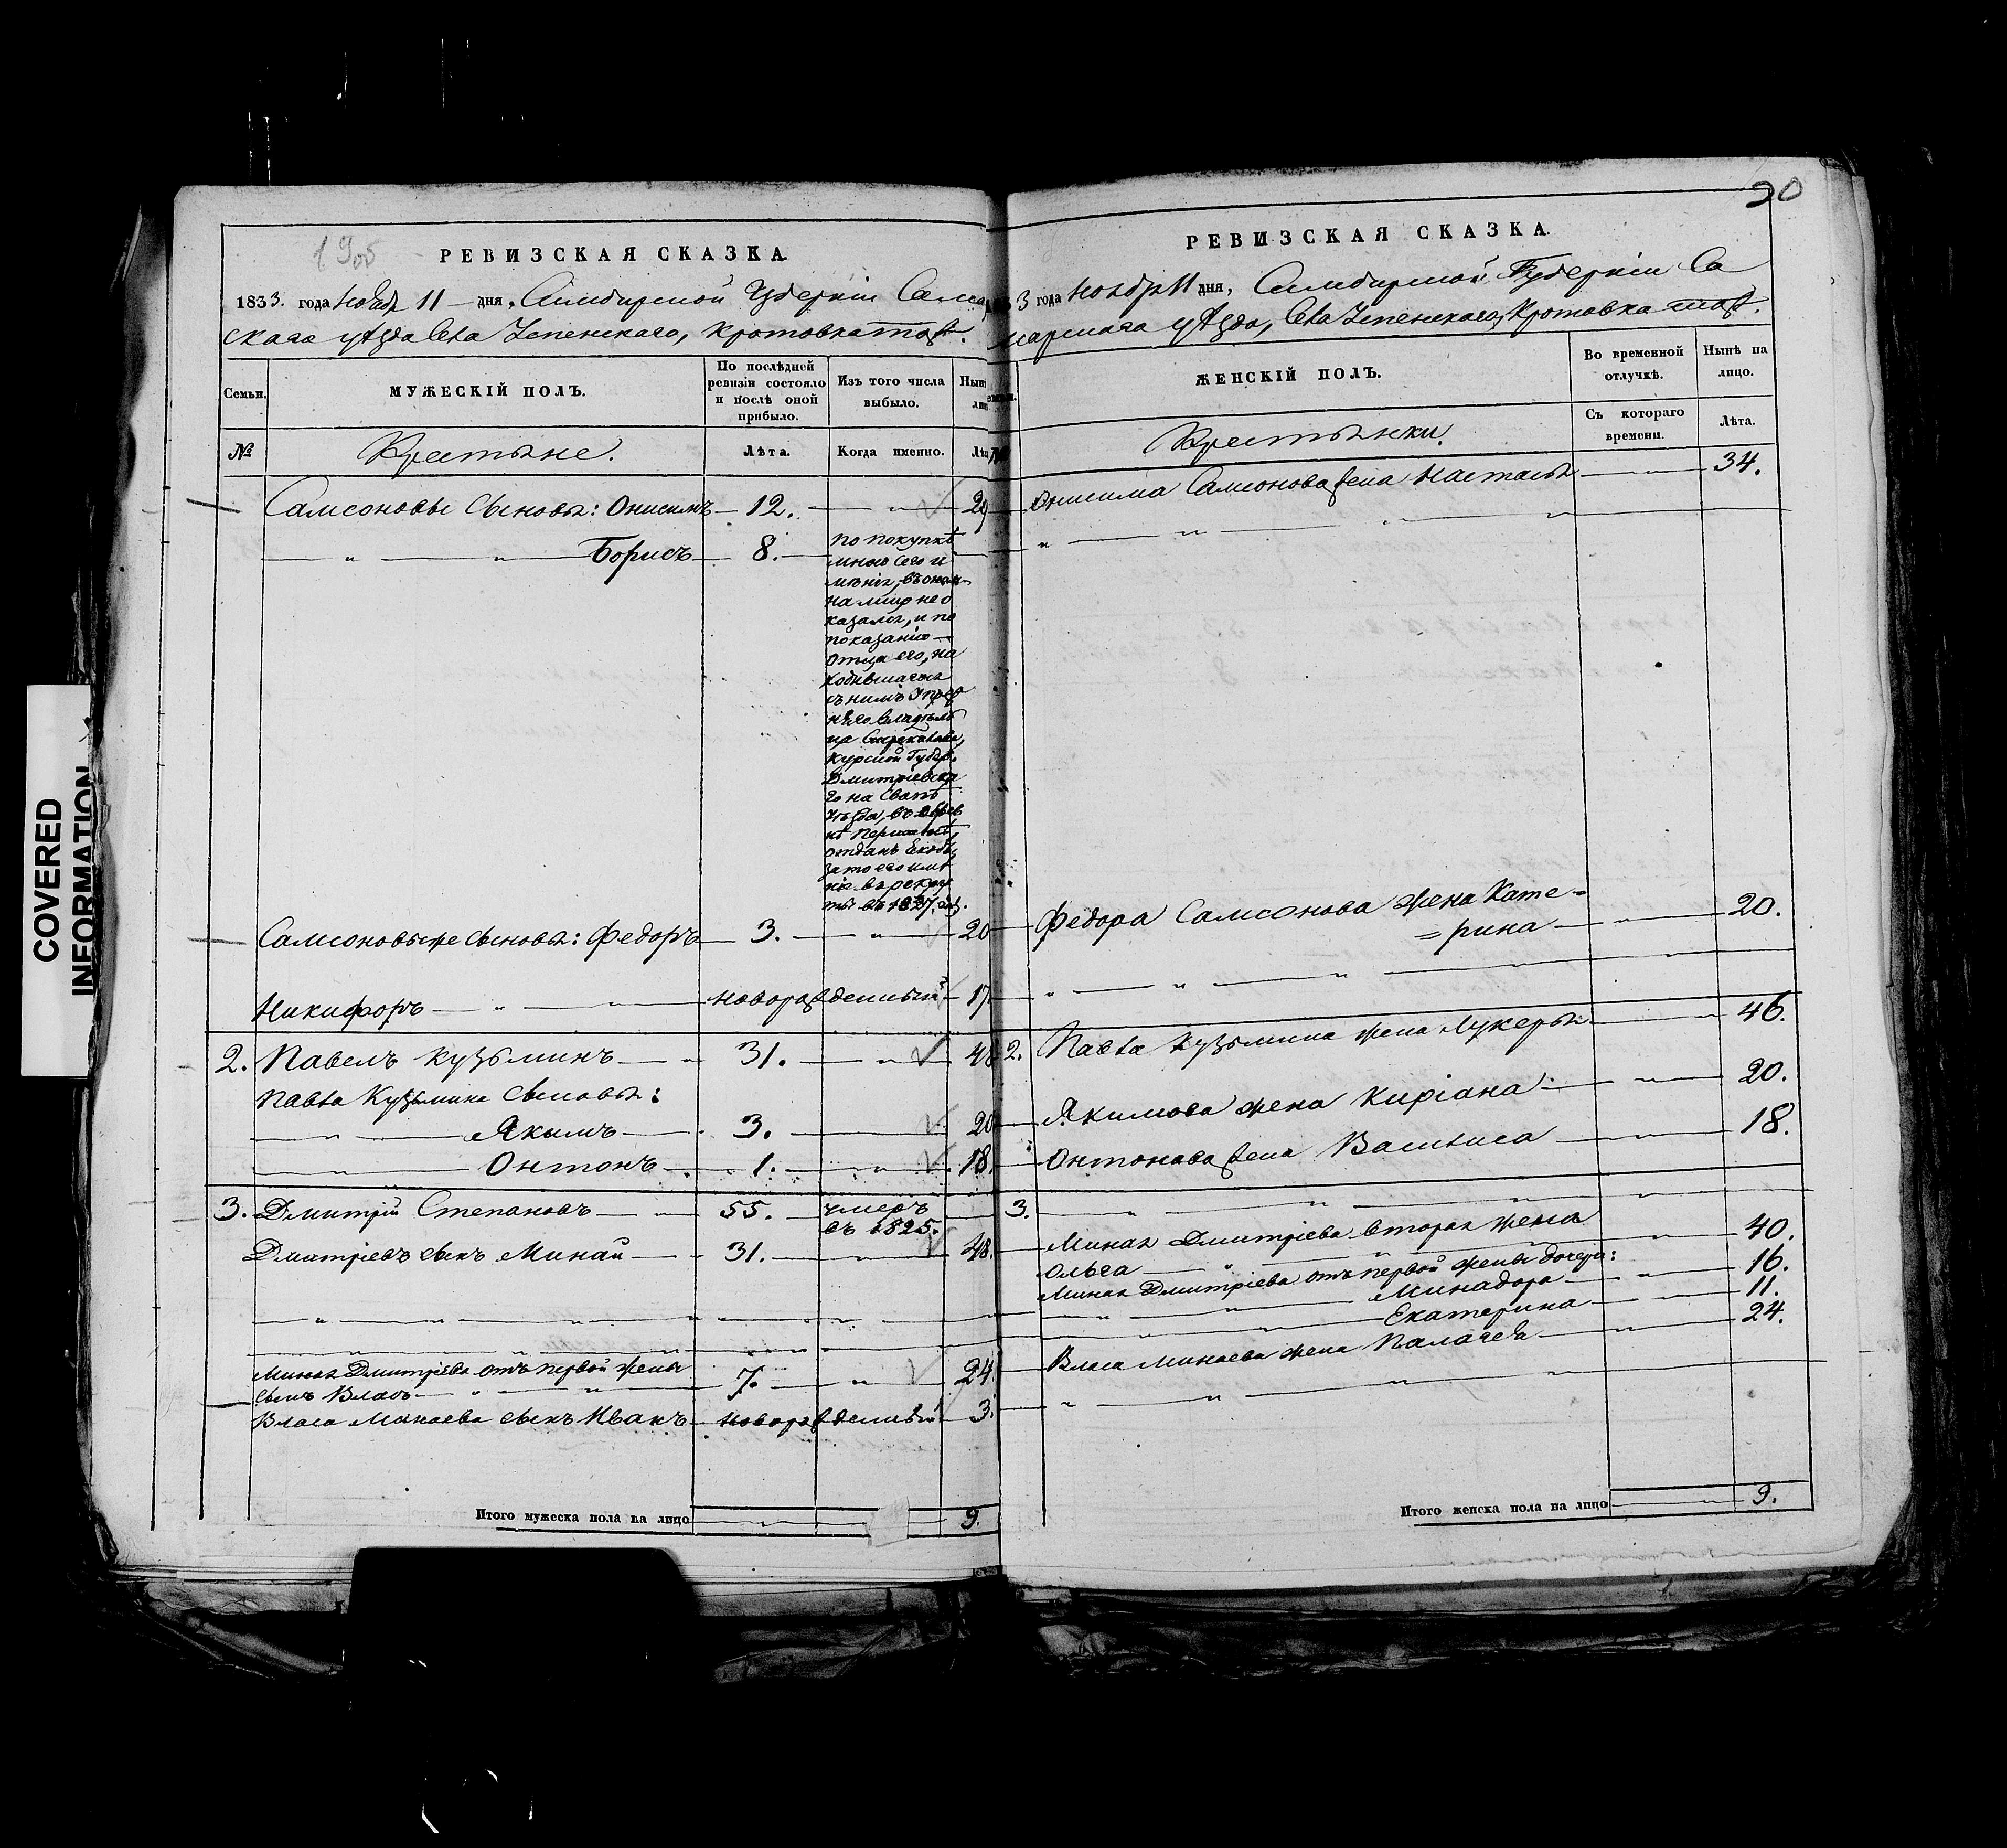 COVERED
INFORMATION
РЕВИЗСКАЯ СКАЗКА.
1833. года Ноябр 11 дня. Симбирской Губерніи Сама
скаго уѣзда Села Успенскаго, Кротовка тож.
Семьи.
МУЖЕСКІЙ ПОЛЪ.
По послѣдней
ревизіи состояло
и послѣ оной
прибыло.
Изъ того числа
выбыло.
№
Крестьяне.
Лѣта.
Когда именно.
Самсоновы Сыновья: Онисимъ 12. " 29
" " Борисъ 8.
по покупкѣ
мною сего и
мѣнія, въ оном
на лицо не о
казался, и по
показанію
отца его, на
ходившагося
съ нимъ у преж
няго владѣль
ца
Курской Губер.
Дмитріевска
го на Свапѣ
Уѣзда, въ дерев
нѣ
отданъ
за то его имѣ
ніе въ рекру
ты въ 1827. год.
Самсоновы же Сыновья: Федоръ 3. " 20
Никифоръ " новорожденный 17
2. Павелъ Кузьминъ " 31. " 48
Павла Кузьмина Сыновья:
" Якимъ 3. 20
" Онтонъ 1. " 18.
3. Дмитрій Степановъ " 55. умеръ
въ 1825.
Дмитріевъ сынъ Минай 31. " 48.
" " " " " " "
" " " " " "
Миная Дмитріева отъ первой жены
сынъ Власъ " " 7. " 24.
Власа Минаева сынъ Иванъ новорожденный 3.
Итого мужеска пола на лицо " " 9.
20
РЕВИЗСКАЯ СКАЗКА.
3 года Ноября 11 дня, Симбирской Губерніи Са
марскаго уѣзда, Села Успенскаго, Кротовка тож.
ЖЕНСКІЙ ПОЛЪ.
Во временной
отлучкѣ.
Нынѣ на
лицо.
Съ котораго
времени.
Лѣта.
Крестьянки.
Онисима Самсонова жена Настасья " 34.
" " " "
Федора Самсонова жена Кате=
=рина " 20.
" " "
2. Павла Кузьмина жена Лукерья " 46.
Якимова жена Киріана " 20.
Онтонова жена Василиса " 18.
3. " " " "
Миная Дмитріева вторая жена
Ольга " " " " 40.
Миная Дмитріева отъ первой жены дочери:
" " Минадора " 16.
" " Екатерина " 11.
Власа Минаева жена Палагея " 24.
" " " "
Итого женска пола на лицо " 9.